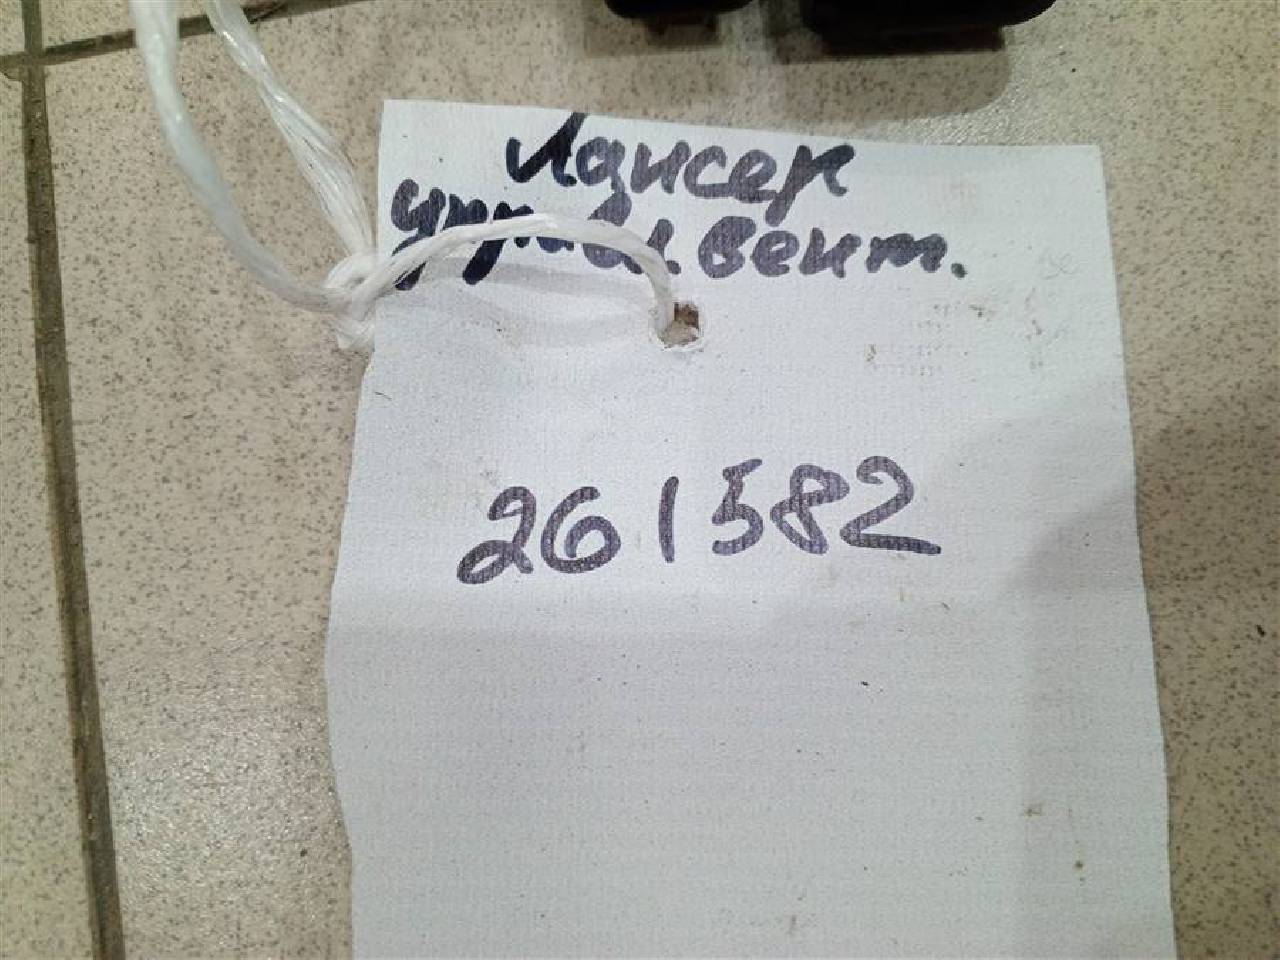 Лансер
управл. вент.
261582